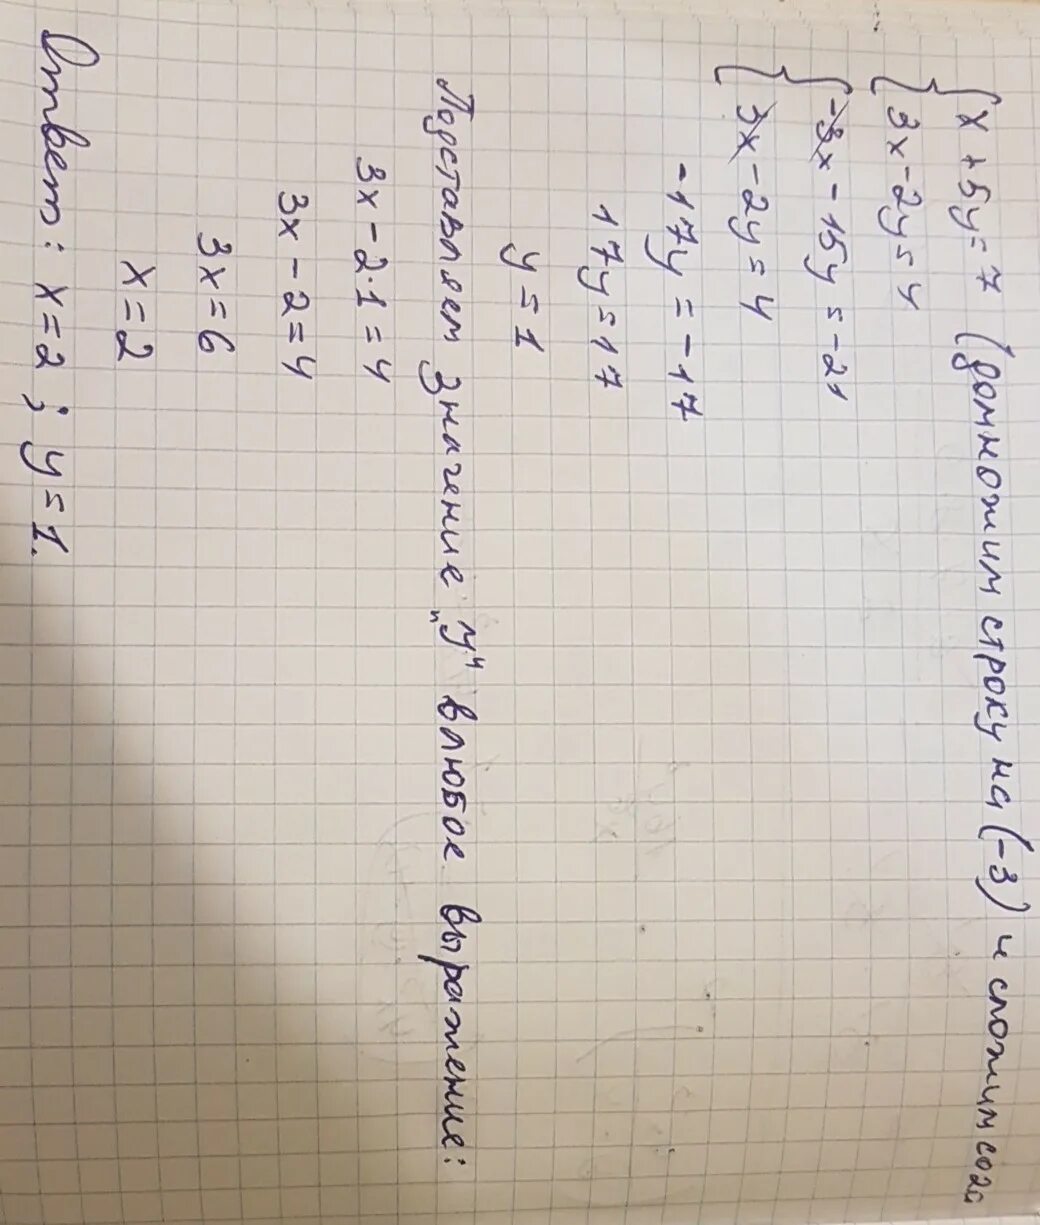 x + 5y = 7 (домножим строку на (-3) и сложим со 2й
3x - 2y = 4
-3x - 15y = -21
3x - 2y = 4
-17y = -17
17y = 17
y = 1
Подставляем значение "y" в любое выражение:
3x - 2·1 = 4
3x - 2 = 4
3x = 6
x = 2
Ответ: x = 2 ; y = 1.